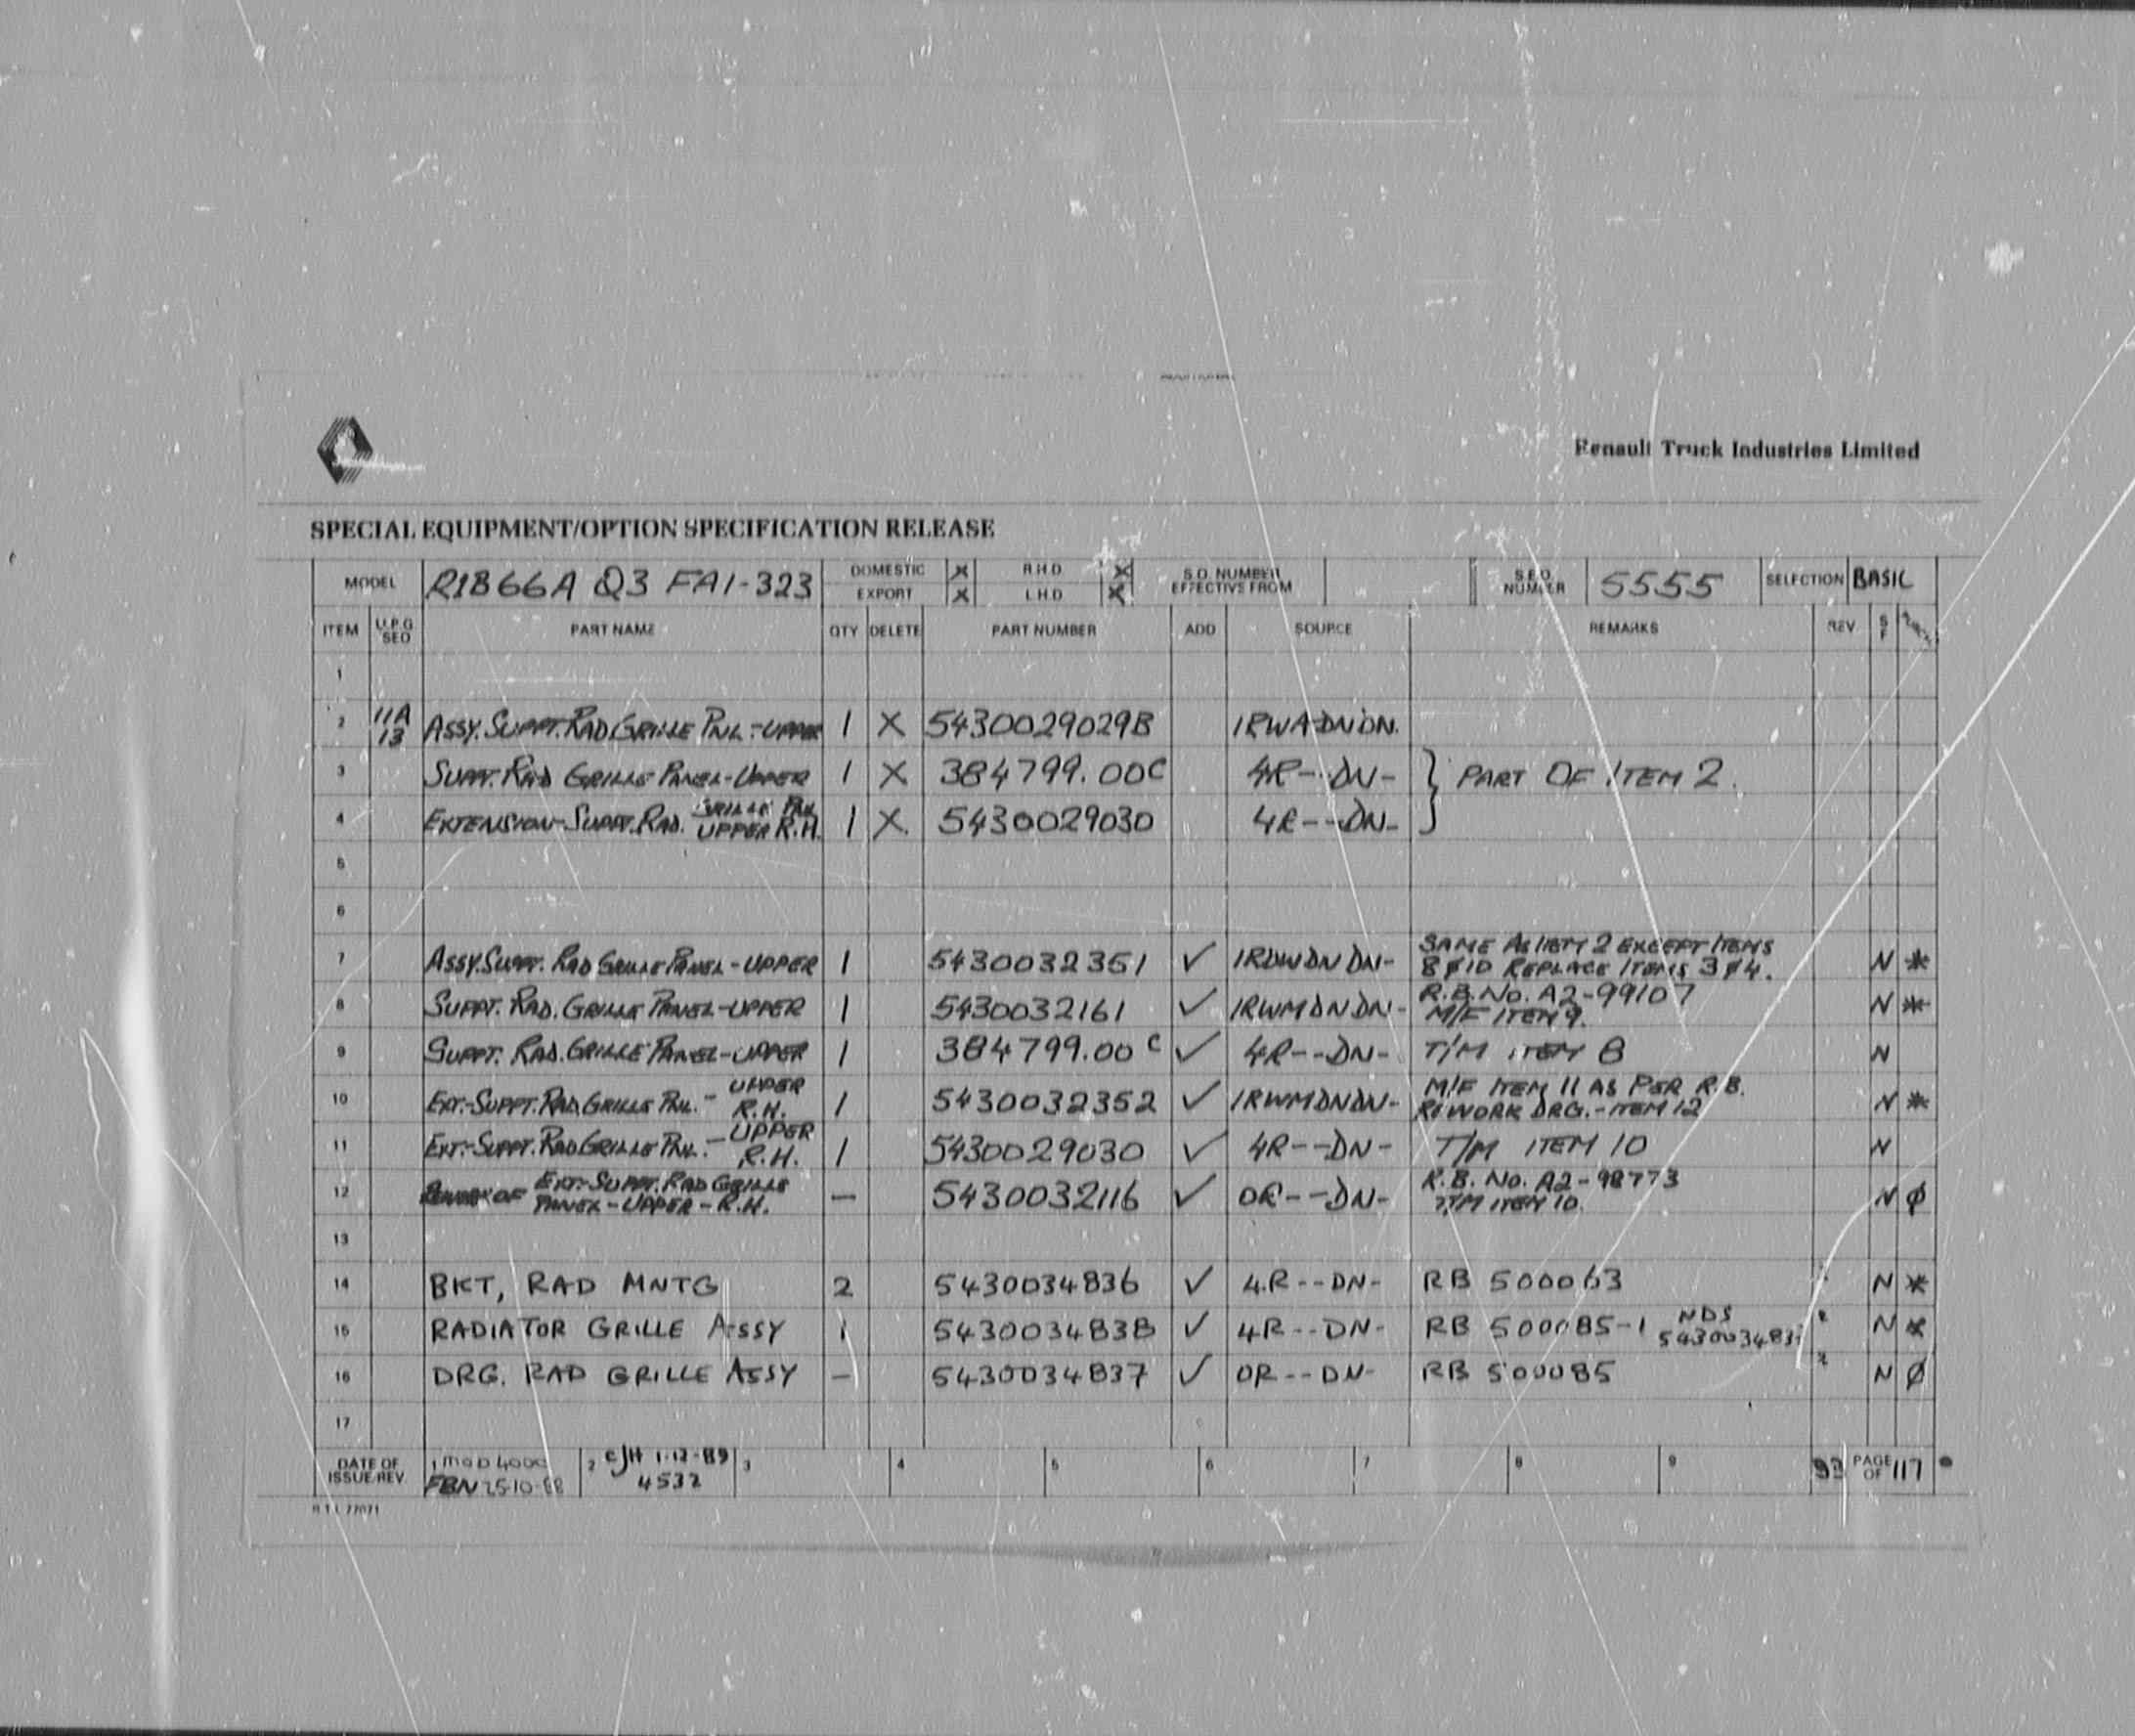 Renault Truck Industries Limited
SPECIAL EQUIPMENT/OPTION SPECIFICATION RELEASE
MODEL R1866A Q3 FA1-323 DOMESTIC X R.H.D. X S.O. NUMBER EFFECTIVE FROM S.E.O. NUMBER 5555 SELECTION BASIC
EXPORT X L.H.D. X
ITEM U.P.G SEQ PART NAME QTY DELETE PART NUMBER ADD SOURCE REMARKS REV S F
1
2 11A 13 ASSY. SUPPT. RAD GRILLE PNL.-UPPER 1 X 5430029029B 1RWADNDN.
3 SUPPT. RAD GRILLE PANEL-UPPER 1 X 384799.00C 4R--DN- } PART OF ITEM 2.
4 EXTENSION-SUPPT. RAD. GRILLE PNL UPPER R.H. 1 X. 5430029030 4R--DN-
5
6
7 ASSY. SUPPT. RAD GRILLE PANEL-UPPER 1 5430032351 ✓ 1RDWDNDN- SAME AS ITEM 2 EXCEPT ITEMS N *
8 & 10 REPLACE ITEMS 3 & 4.
8 SUPPT. RAD. GRILLE PANEL-UPPER 1 5430032161 ✓ 1RWMDNDN- R.B. No. A2-99107 N *
M/F ITEM 9.
9 SUPPT. RAD. GRILLE PANEL-UPPER 1 384799.00C ✓ 4R--DN- T/M ITEM 8 N
10 EXT.-SUPPT. RAD. GRILLE PNL.- UPPER R.H. 1 5430032352 ✓ 1RWMDNDN- M/F ITEM 11 AS PER R.B. N *
REWORK DRG.-ITEM 12
11 EXT.-SUPPT. RAD GRILLE PNL.- UPPER R.H. 1 5430029030 ✓ 4R--DN- T/M ITEM 10 N
12 REWORK OF EXT.-SUPPT. RAD GRILLE PANEL-UPPER-R.H. — 5430032116 ✓ OR--DN- R.B. No. A2-98773 N ϕ
T/M ITEM 10.
13
14 BKT, RAD MNTG 2 5430034836 ✓ 4R--DN- RB 500063 N *
15 RADIATOR GRILLE ASSY 1 5430034838 ✓ 4R--DN- RB 500085-1 NDS 2 N *
16 DRG. RAD GRILLE ASSY — 5430034837 ✓ OR--DN- RB 500085 2 N ϕ
17
DATE OF ISSUE/REV. 1 MOD 4000 2 CJH 1-12-89 3 4 5 6 7 8 9 93 PAGE OF 117
FBN 25-10-88 4532
R.T.I. 77071